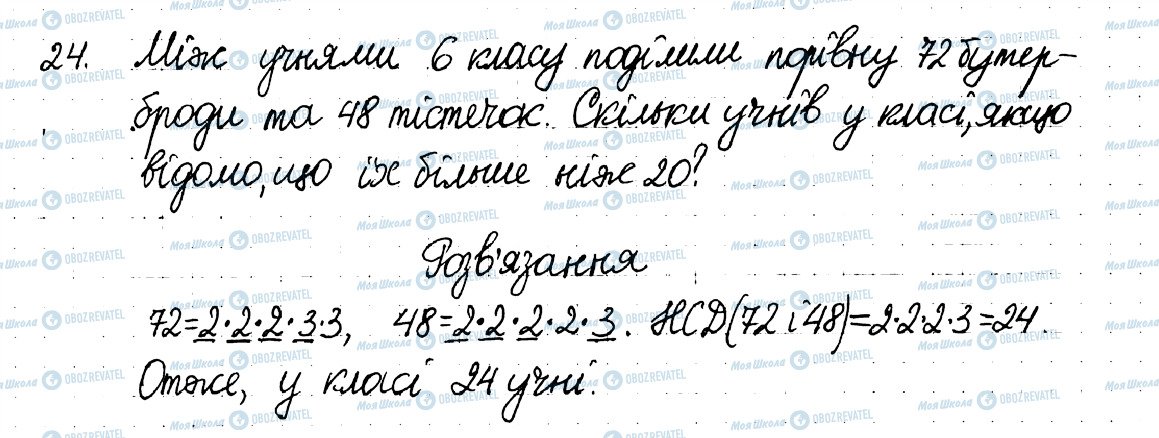 24. Між учнями 6 класу поділили порівну 72 бутер-
броди та 48 тістечок. Скільки учнів у класі, якщо
відомо, що їх більше ніж 20?
Розв'язання
72=2·2·2·3·3, 48=2·2·2·2·3. НСД(72 і 48)=2·2·2·3=24.
Отже, у класі 24 учні.